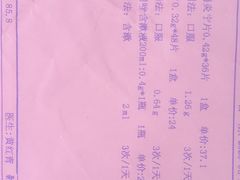 炎宁片0.42g*36片 1盒 单价:37.1
法: 口服 1.26g 3次/1天
0.32g*48片 1盒 单价:24
法: 口服 0.64g 3次/1天
含漱液200ml:0.4g*1瓶 1瓶 单价:24
法: 含漱 2ml 3次/1天
85.8 医生:黄红青